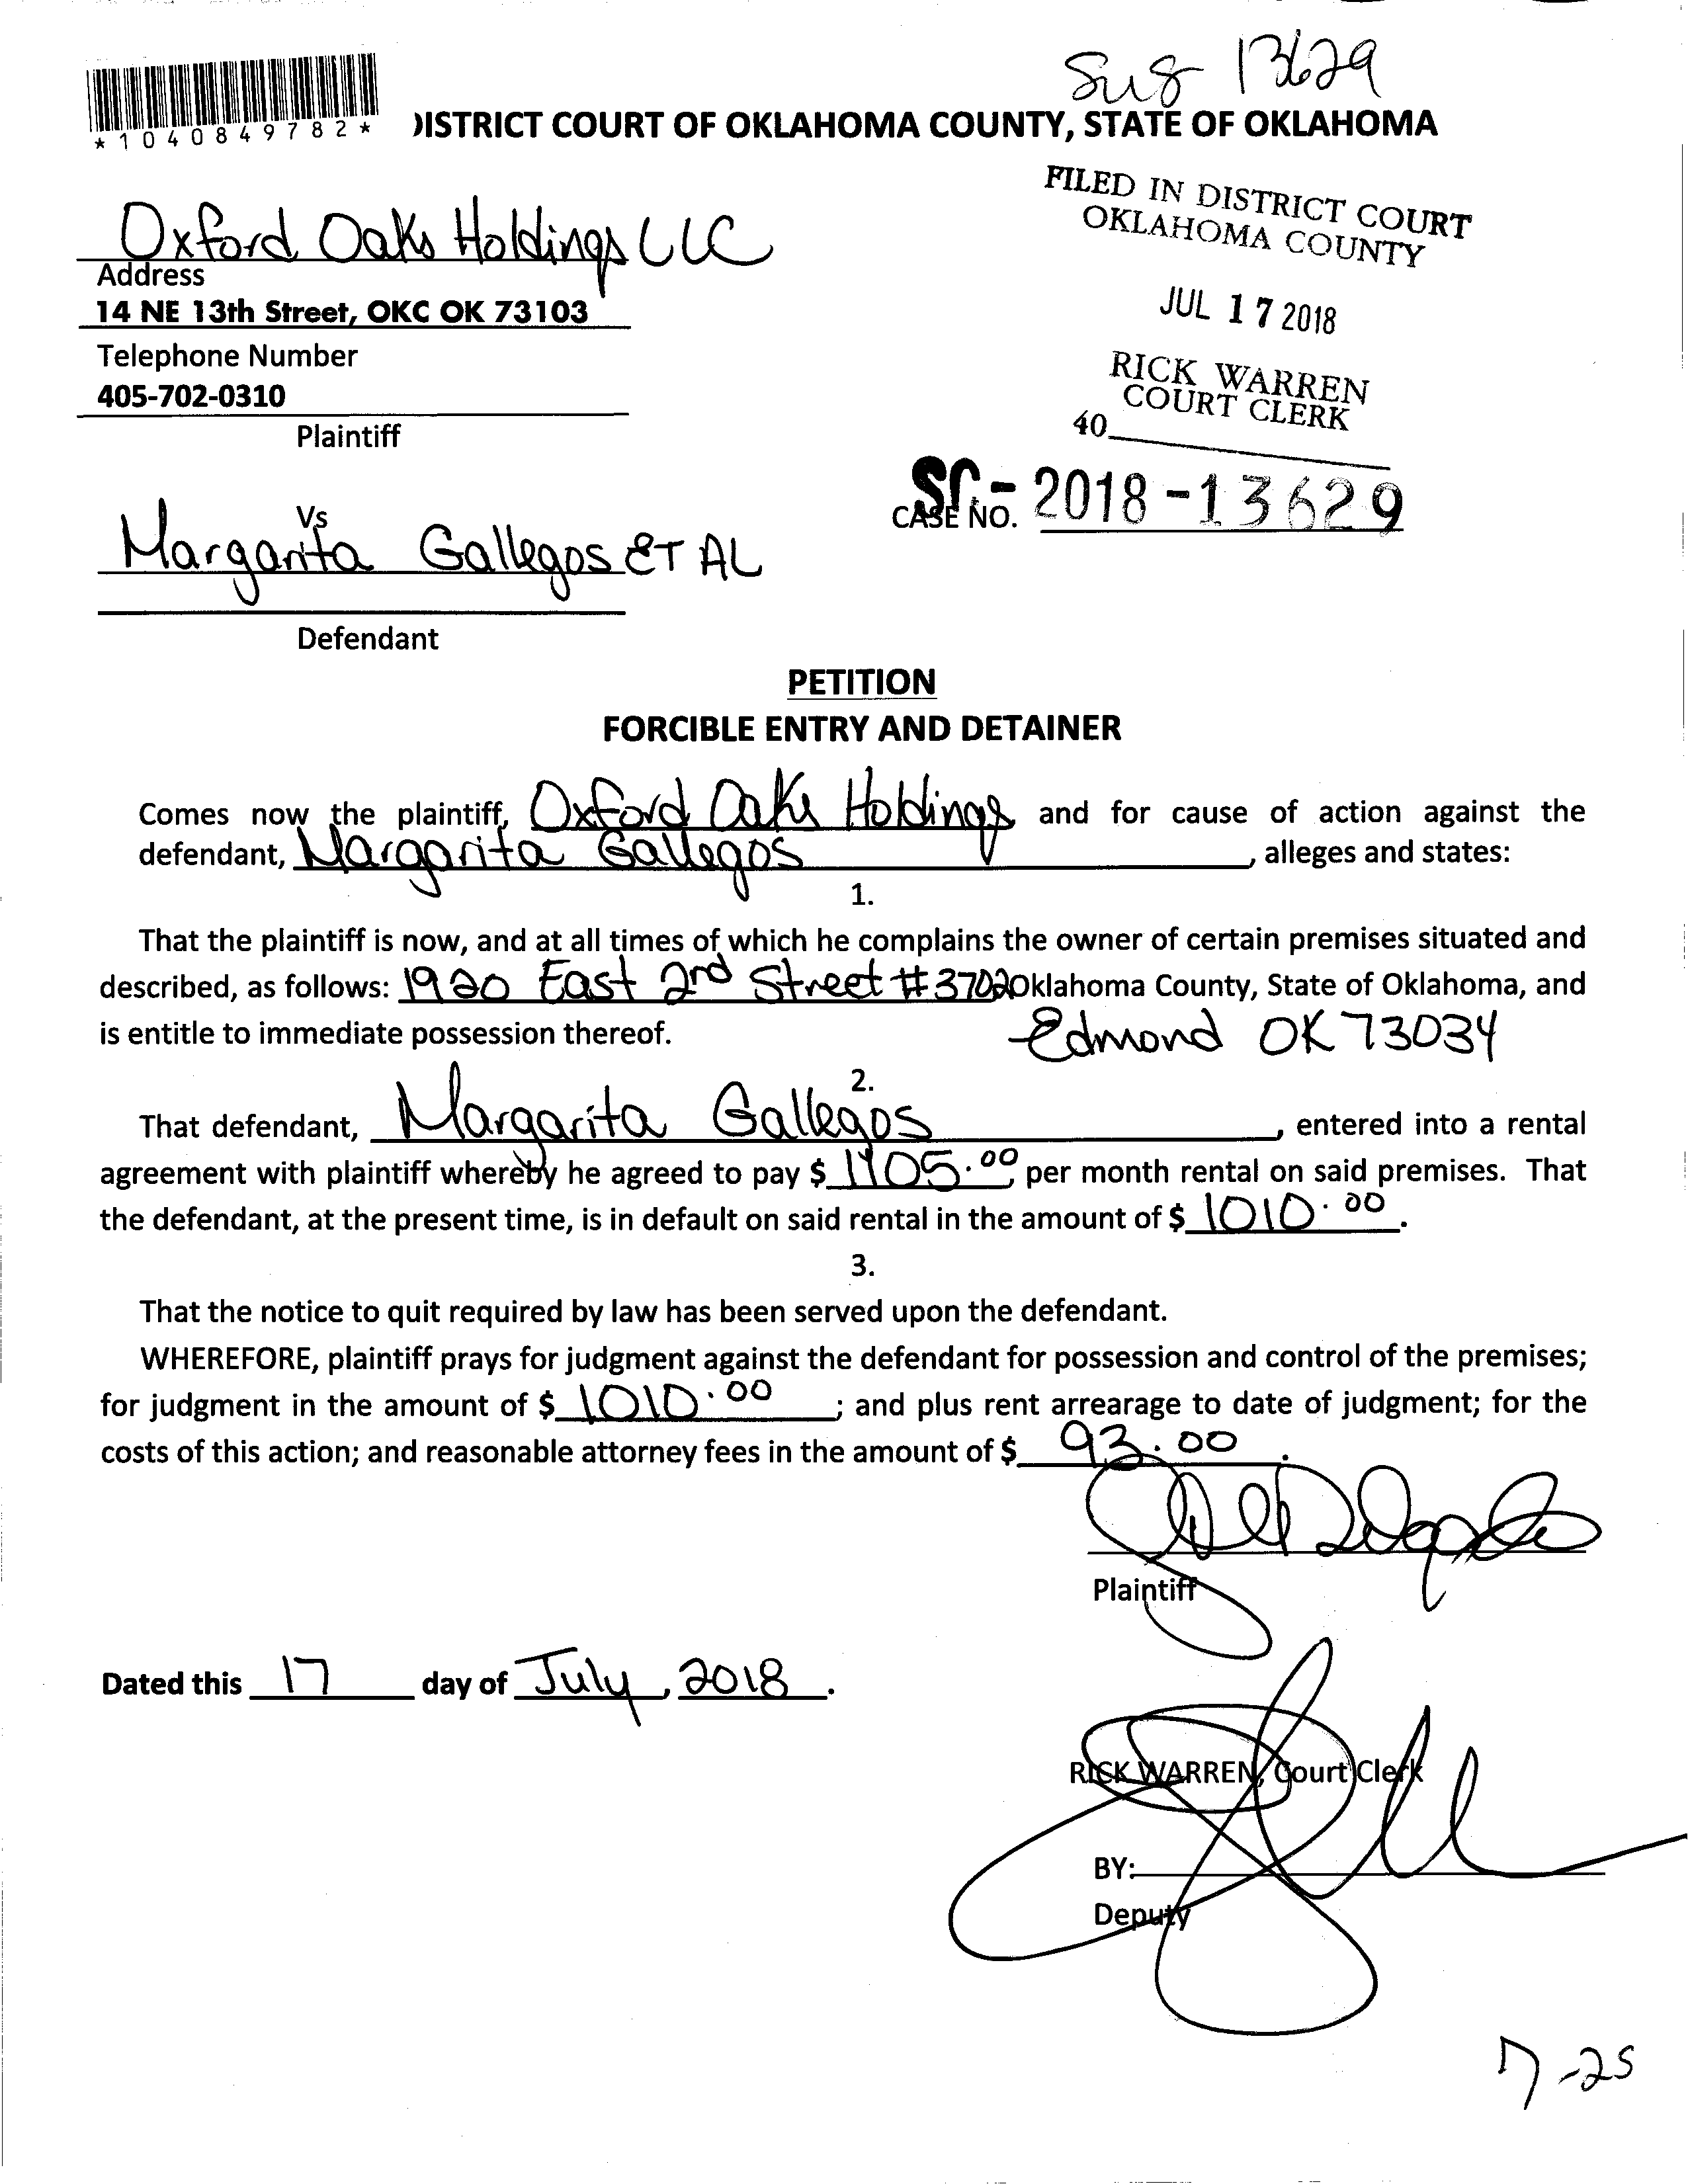 Sug 13629
*1040849782*
DISTRICT COURT OF OKLAHOMA COUNTY, STATE OF OKLAHOMA
FILED IN DISTRICT COURT
OKLAHOMA COUNTY
Oxford Oaks Holdings LLC
Address
14 NE 13th Street, OKC OK 73103
JUL 17 2018
Telephone Number
405-702-0310
RICK WARREN
COURT CLERK
40
Plaintiff
SC - 2018 - 13629
CASE NO.
Vs
Margarita Gallegos ET AL
Defendant
PETITION
FORCIBLE ENTRY AND DETAINER
Comes now the plaintiff, Oxford Oaks Holdings and for cause of action against the
defendant, Margarita Gallegos, alleges and states:
1.
That the plaintiff is now, and at all times of which he complains the owner of certain premises situated and
described, as follows: 1920 East 2nd Street #3702 Oklahoma County, State of Oklahoma, and
is entitle to immediate possession thereof. Edmond OK 73034
2.
That defendant, Margarita Gallegos, entered into a rental
agreement with plaintiff whereby he agreed to pay $ 1105.00 per month rental on said premises. That
the defendant, at the present time, is in default on said rental in the amount of $ 1010.00.
3.
That the notice to quit required by law has been served upon the defendant.
WHEREFORE, plaintiff prays for judgment against the defendant for possession and control of the premises;
for judgment in the amount of $ 1010.00; and plus rent arrearage to date of judgment; for the
costs of this action; and reasonable attorney fees in the amount of $ 93.00.
Plaintiff
Dated this 17 day of July, 2018.
RICK WARREN, Court Clerk
BY:
Deputy
7-25